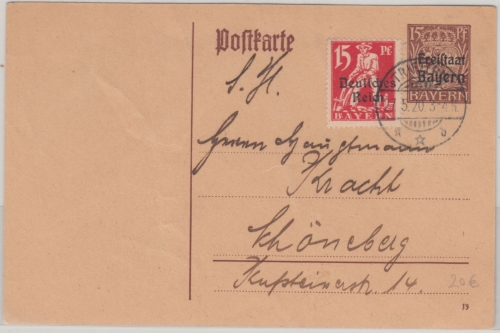 Postkarte
15 Pf
Deutsches
Reich
BAYERN
15 Pf
Freistaat
Bayern
BAYERN
5.20
S. H.
Herrn Hauptmann
Kracht
Schöneberg
Kufsteinerstr. 14.
20€
19